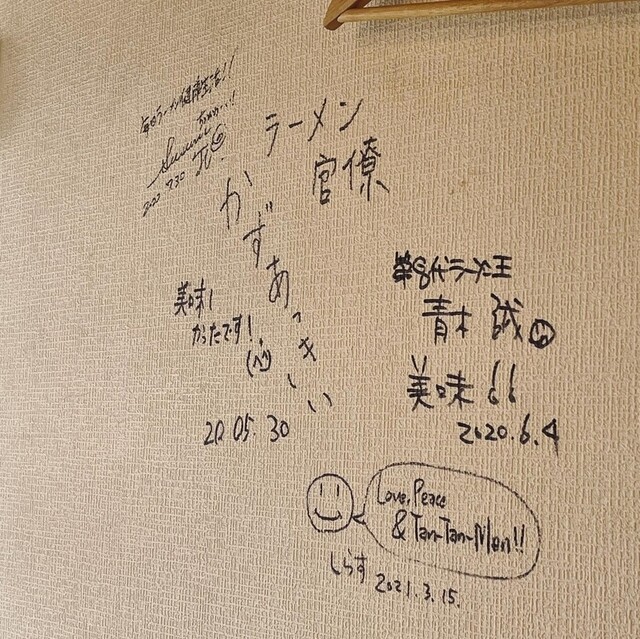 毎日ラーメン健康生活!!
ラーメン
官僚
かずあっきぃ
美味し
かったです!
20.05.30
第8代ラーメン王
青木 誠
美味!!
2020.6.4
Love, Peace
& Tan-Tan-Men!!
しらす 2021.3.15.